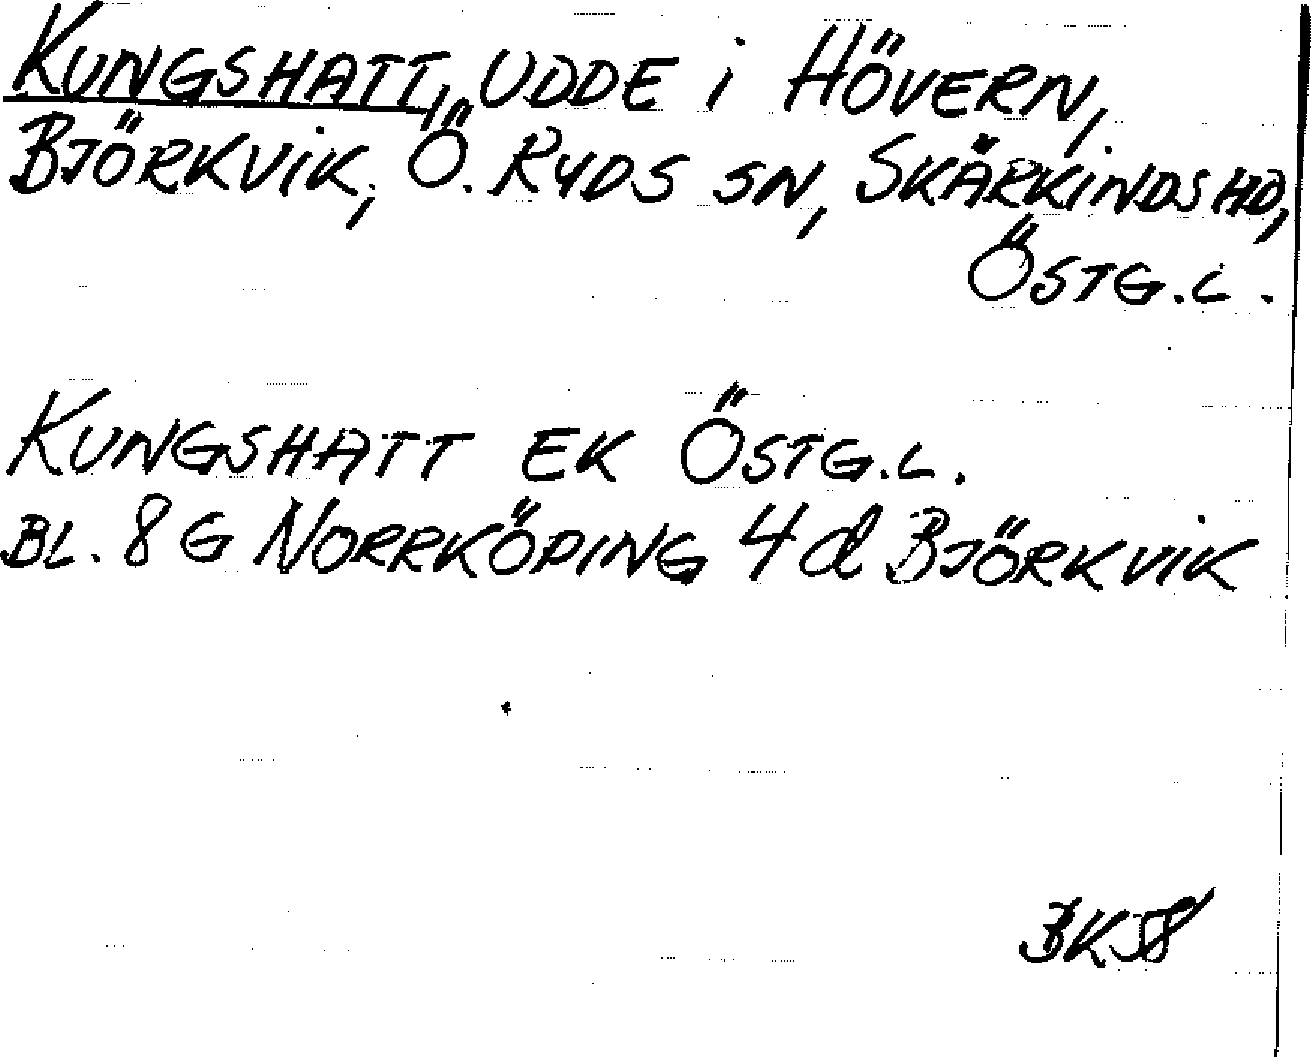 KUNGSHATT, UDDE i HÖVERN,
BJÖRKVIK, Ö. RYDS SN, SKÄRKINDS HD,
ÖSTG.L.
KUNGSHATT EK ÖSTG.L.
BL. 8 G NORRKÖPING 4 d BJÖRKVIK
BK58